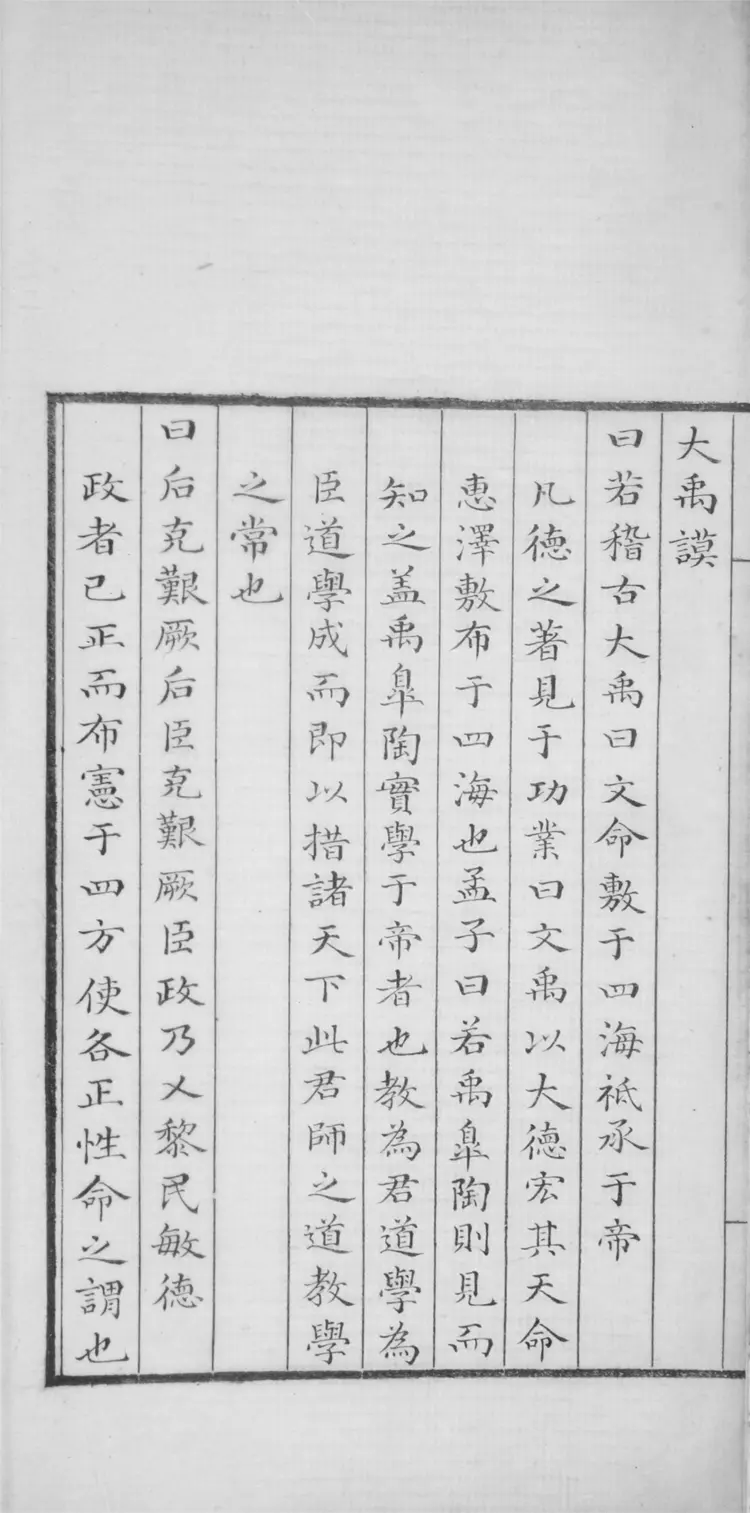 大禹謨
曰若稽古大禹曰文命敷于四海祗承于帝
凡德之著見于功業曰文禹以大德宏其天命
惠澤敷布于四海也孟子曰若禹臯陶則見而
知之盖禹臯陶實學于帝者也教為君道學為
臣道學成而即以措諸天下此君師之道教學
之常也
曰后克艱厥后臣克艱厥臣政乃乂黎民敏德
政者己正而布憲于四方使各正性命之謂也